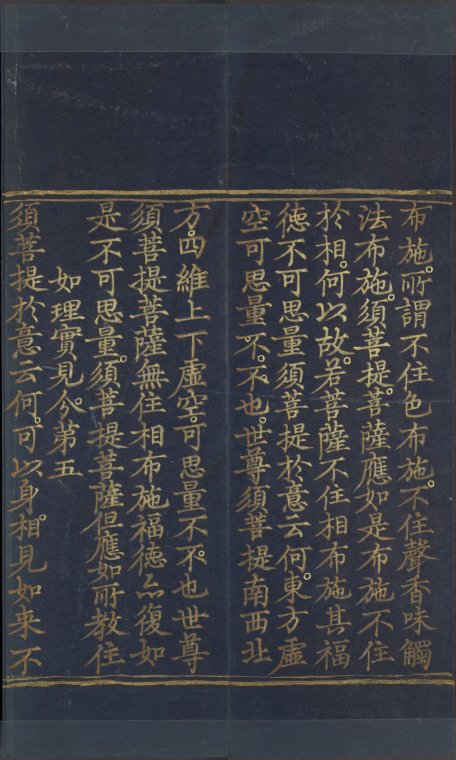 布施。所謂不住色布施。不住聲香味觸
法布施。須菩提。菩薩應如是布施不住
於相。何以故。若菩薩不住相布施其福
德不可思量須菩提於意云何。東方虛
空可思量不。不也。世尊須菩提南西北
方。四維上下虛空。可思量不不。也世尊
須菩提菩薩無住相布施福德亦復如
是不可思量。須菩提菩薩但應如所教住
如理實見分第五
須菩提於意云何。可以身相。見如来不